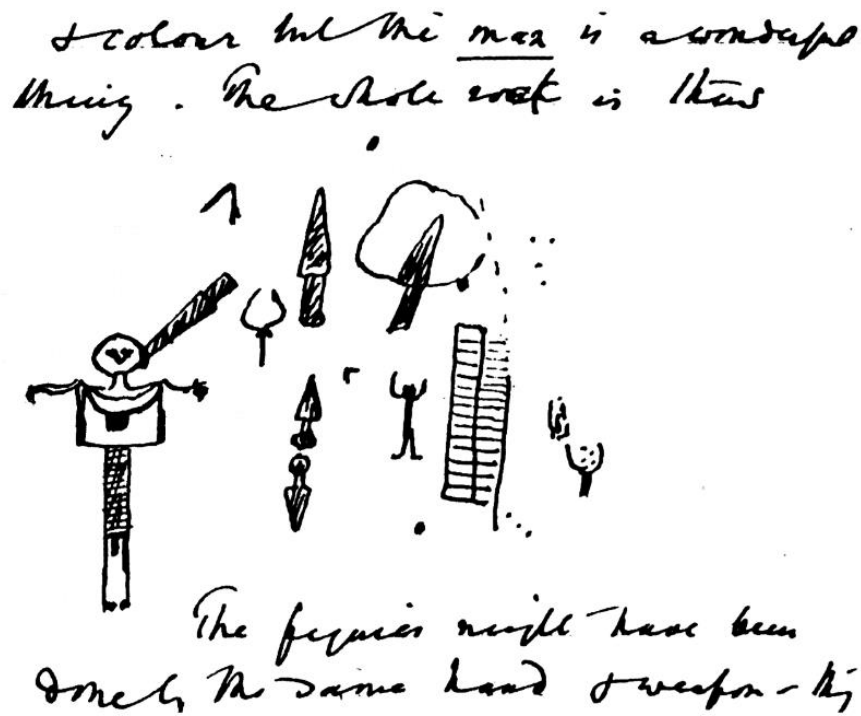 & colour but the man is a wonderful
thing. The whole rock is thus
The figures might have been
done by the same hand & weapon - this